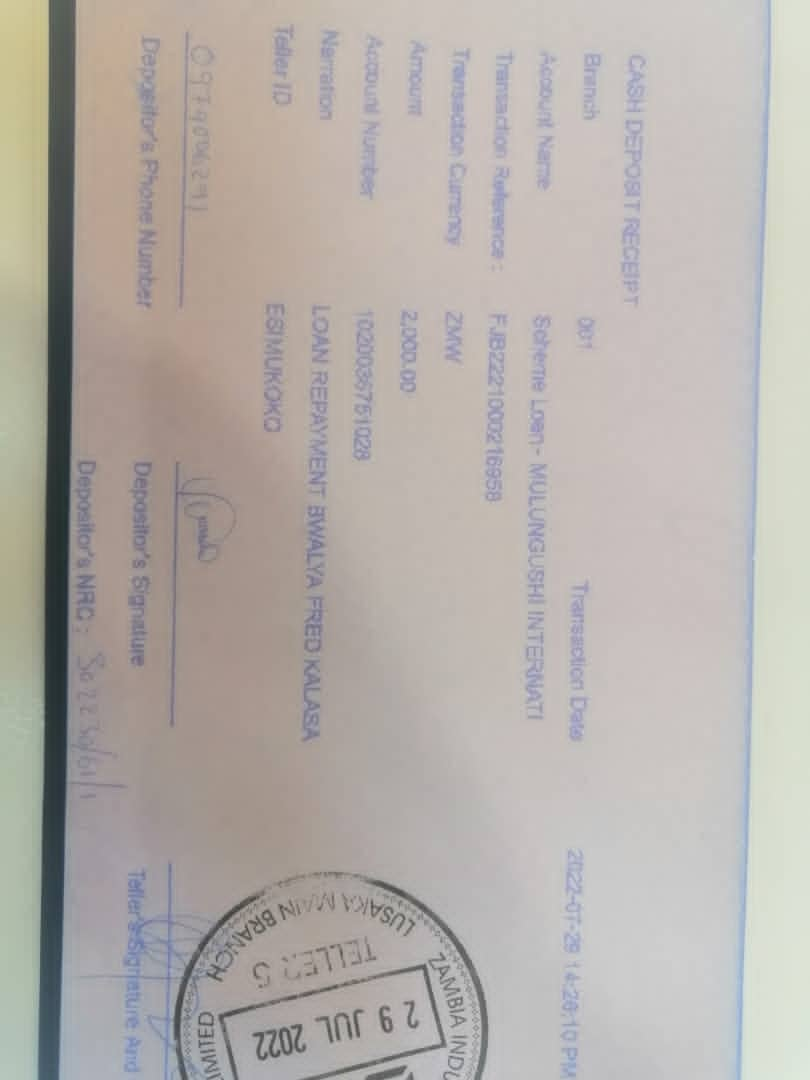 CASH DEPOSIT RECEIPT
Branch 001 Transaction Date 2022-07-29 14:26:10 PM
Account Name Scheme Loan- MULUNGUSHI INTERNATI
Transaction Reference : FJB2221000216958
Transaction Currency ZMW
Amount 2,000.00
Account Number 1020036751028
Narration LOAN REPAYMENT BWALYA FRED KALASA
Teller ID ESIMUKOKO
Depositor's Phone Number
Depositor's Signature
Teller's Signature And
Depositor's NRC :
ZAMBIA INDU
LUSAKA MAIN BRANCH
TELLER 5
29 JUL 2022
IMITED